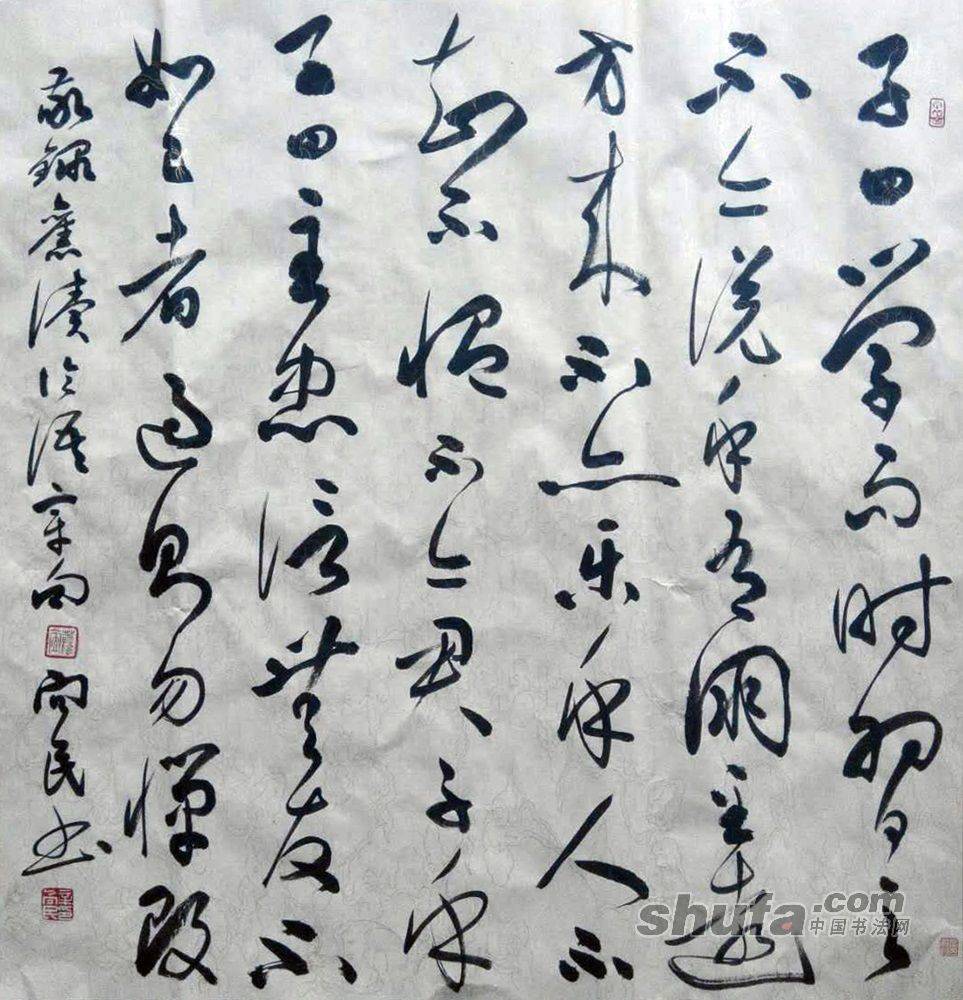 子曰学而时習之
不亦说乎有朋自遠
方来不亦乐乎人不
知不愠不亦君子乎
子曰主忠信無友不
如己者過则勿惮改
敬録舊读论语章句
民书
shufa.com
中国书法网